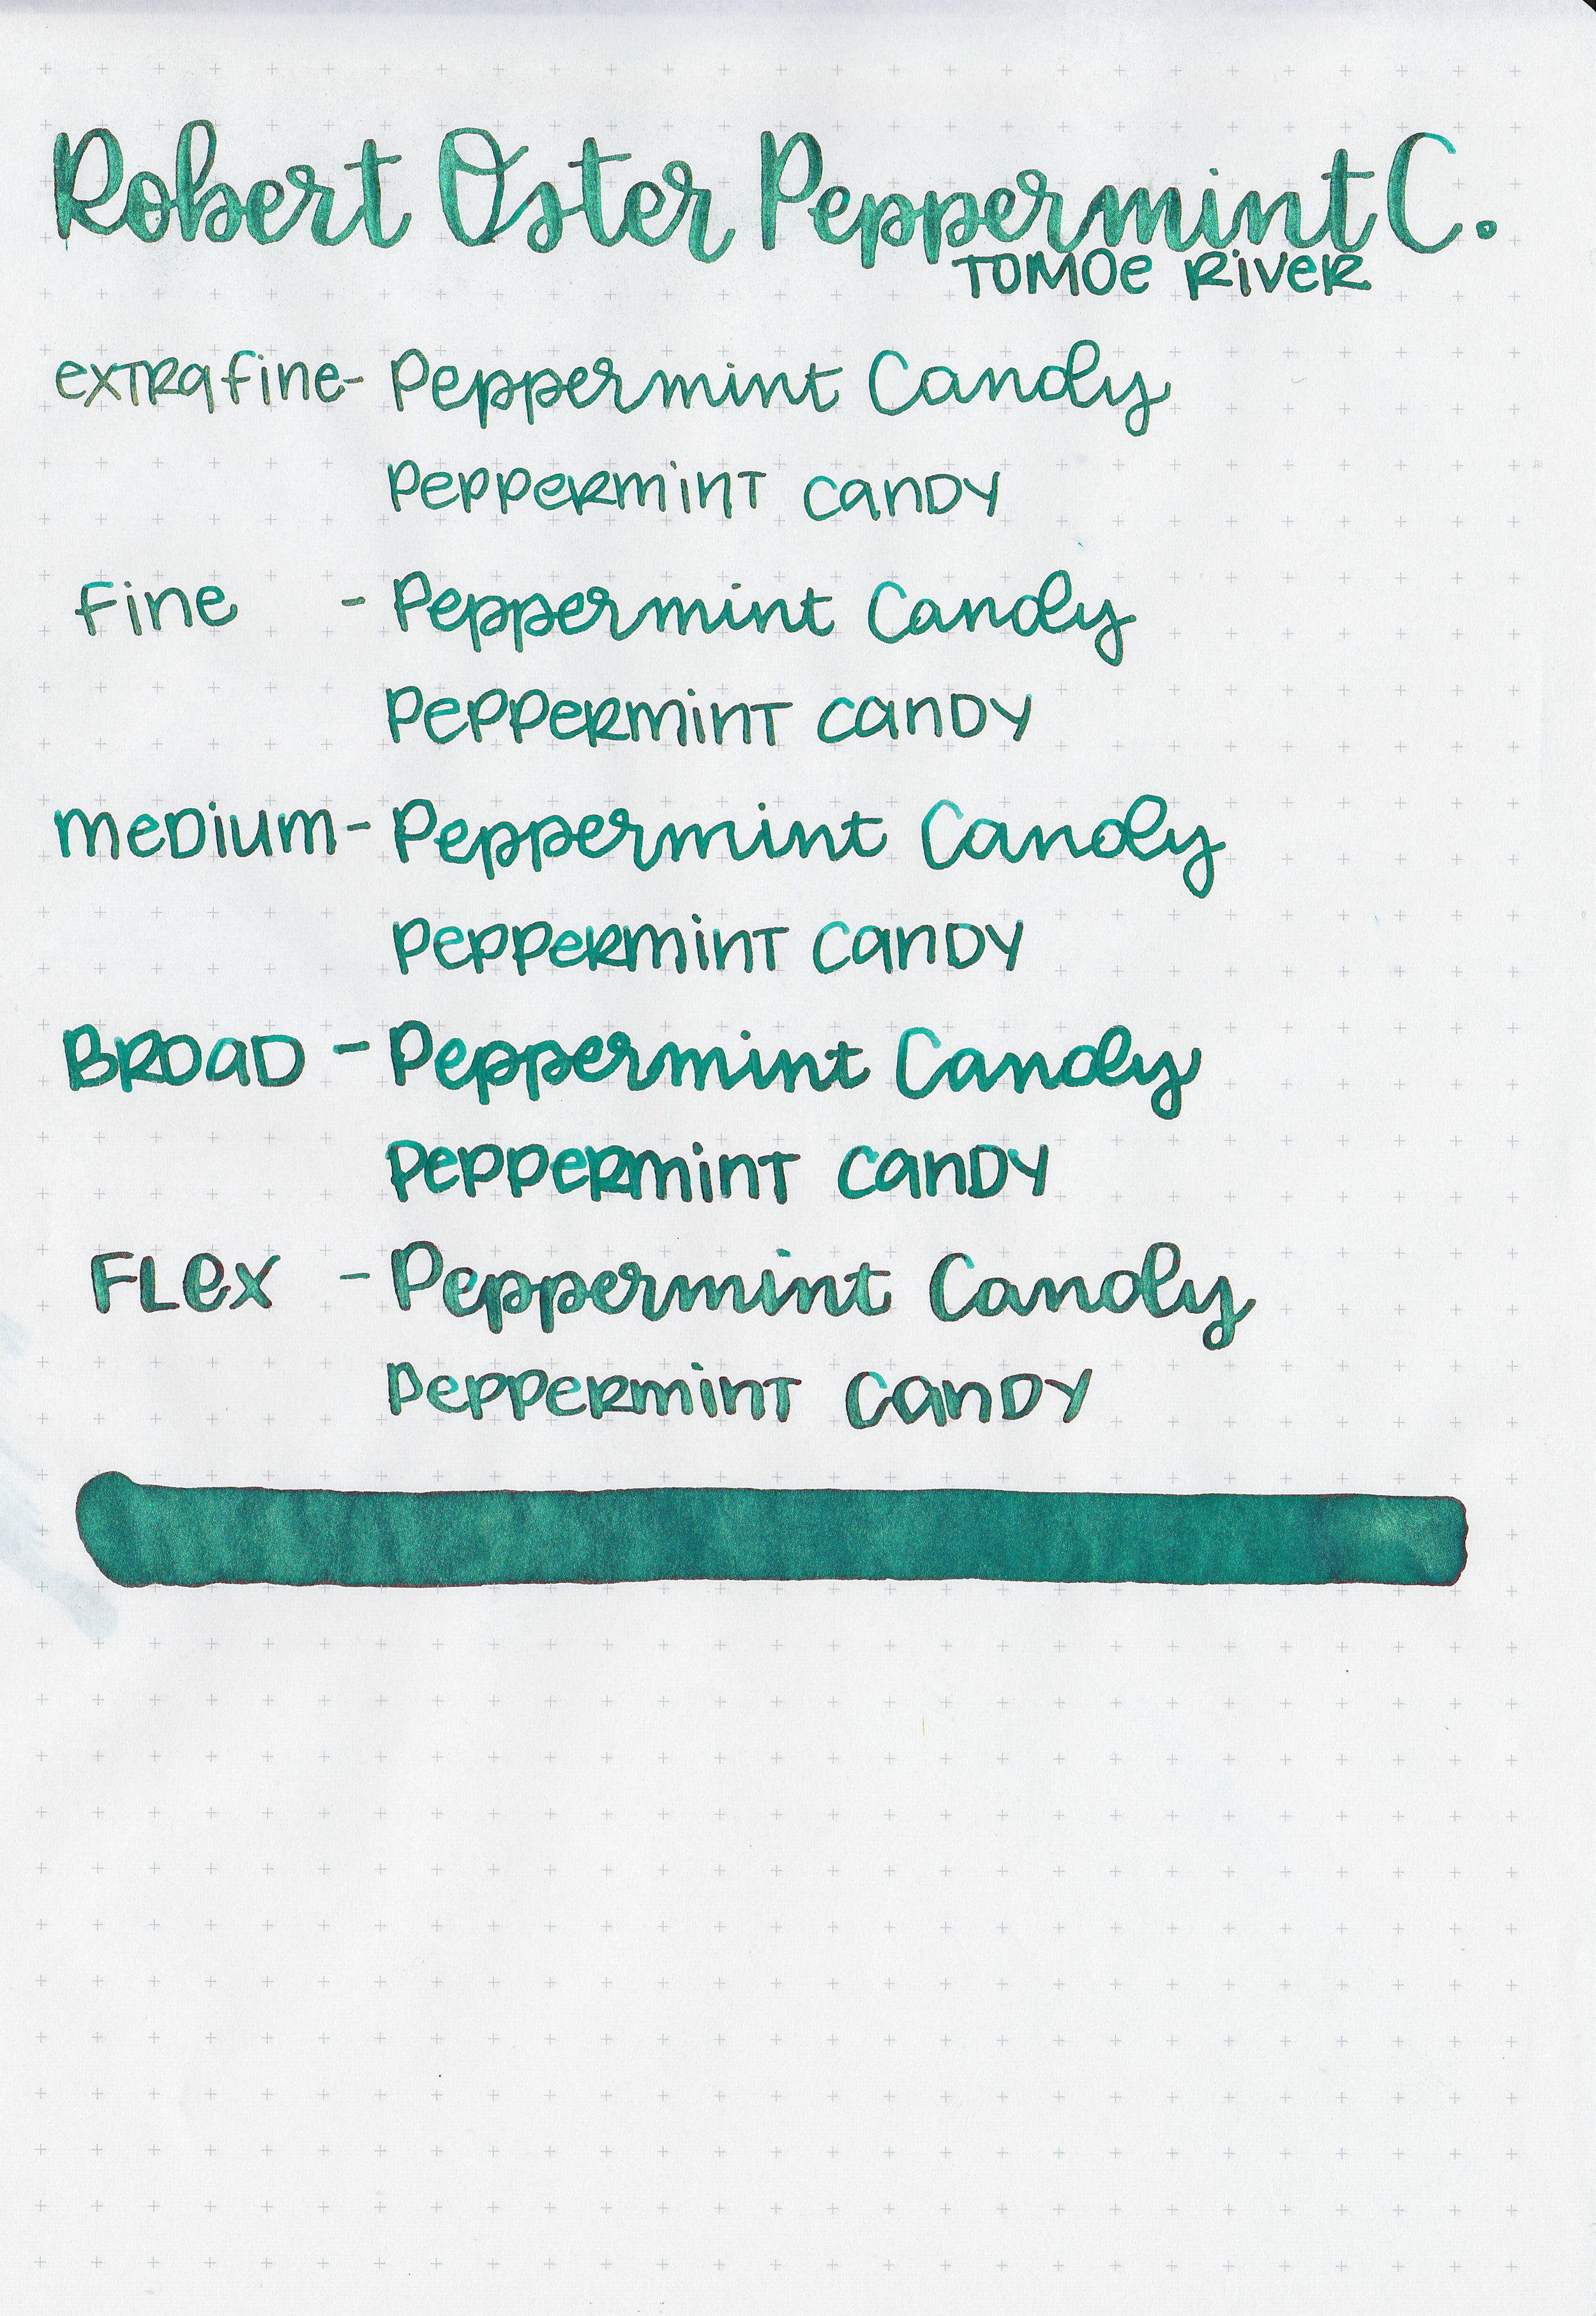 Robert Oster Peppermint C.
TOMOe RiVeR
exTRafine- Peppermint Candy
PePPeRminT CanDY
Fine - Peppermint Candy
PePPeRminT CanDY
meDium- Peppermint Candy
PePPeRminT CanDY
BROaD - Peppermint Candy
PePPeRminT CanDY
FLex - Peppermint Candy
PePPeRminT CanDY